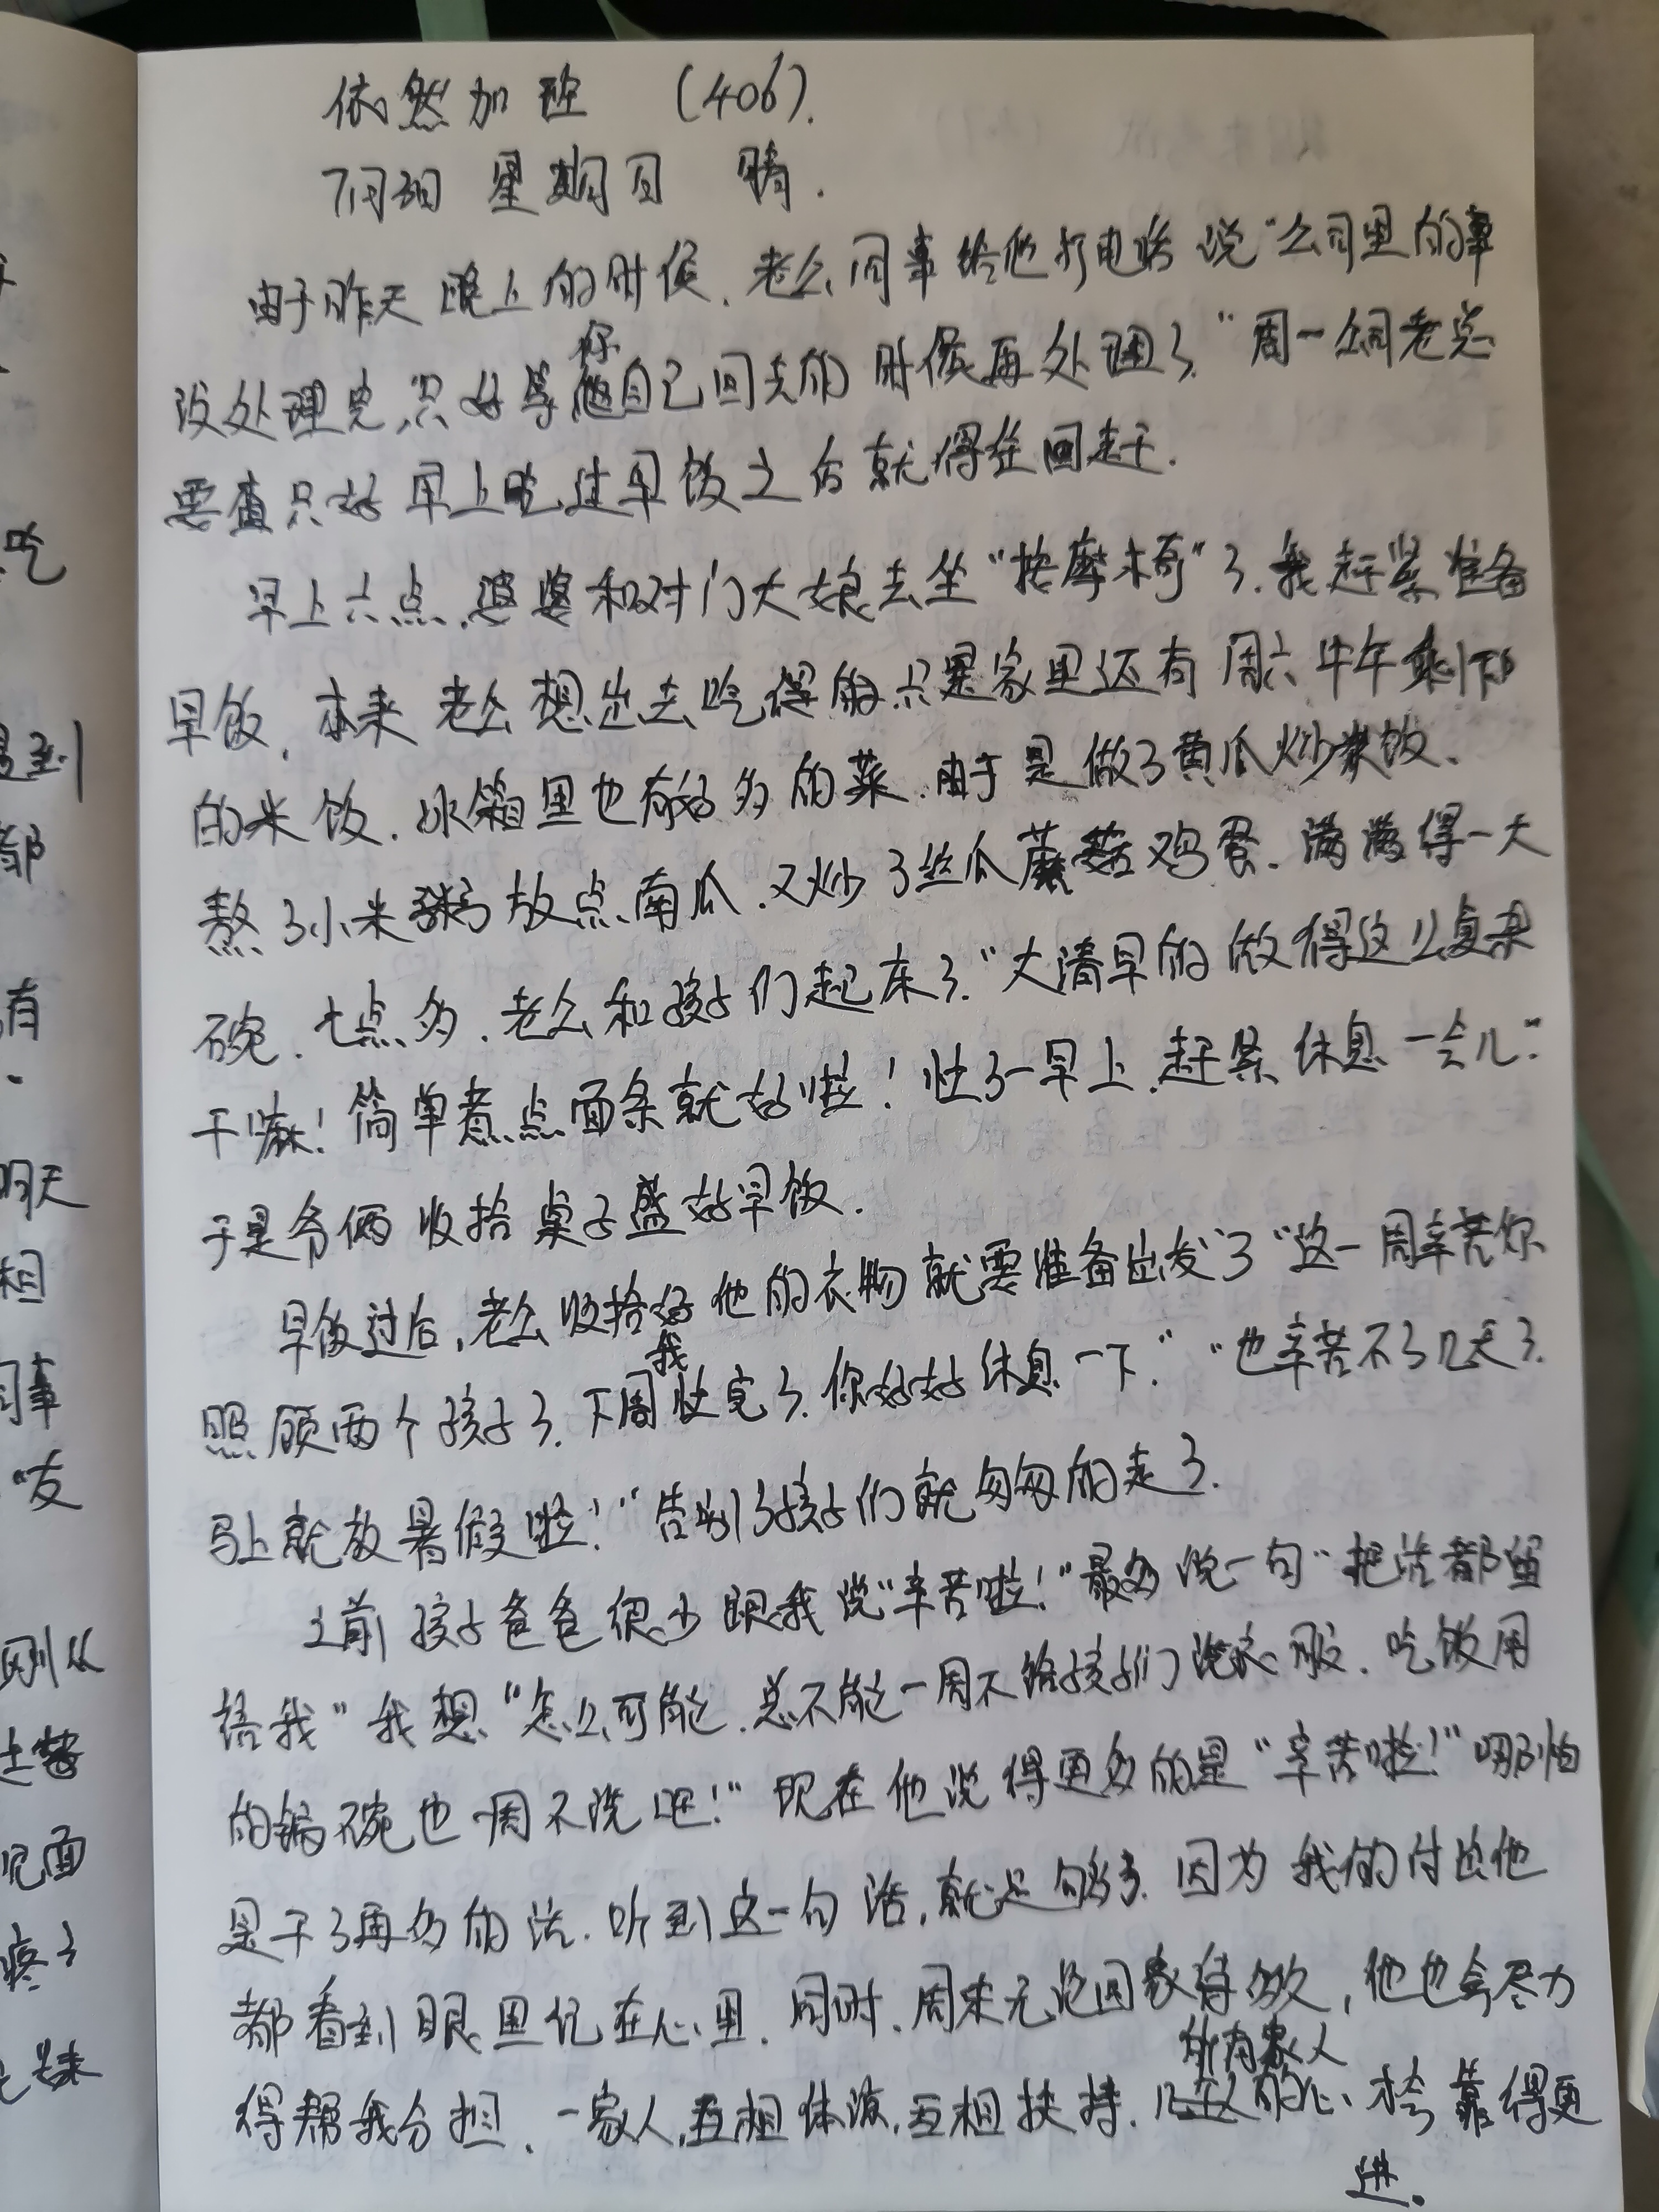 依然加班 (406).
7月3日 星期日 晴.
由于昨天晚上的时候.老公同事给他打电话说“公司里的事
没处理完,只好等你自己回去的时候再处理了.”周一公司老总
要查只好早上吃过早饭之后就得往回赶.
早上六点.婆婆和对门大娘去坐“按摩椅”了.我赶紧准备
早饭.本来老公想出去吃得的只是家里还有周六中午剩下
的米饭.冰箱里也有好多的菜.由于是做了黄瓜炒米饭.
熬了小米粥放点南瓜.又炒了丝瓜蘑菇鸡蛋.满满得一大
碗.七点多.老公和孩子们起床了.“大清早的做得这么复杂
干嘛!简单煮点面条就好啦!忙了一早上.赶紧休息一会儿.”
于是爷俩收拾桌子盛好早饭.
早饭过后,老公收拾好他的衣物就要准备出发了“这一周辛苦你
照顾两个孩子了.下周我忙完了.你好好休息一下.”“也辛苦不了几天了.
马上就放暑假啦!”告别了孩子们就匆匆的走了.
之前孩子爸爸很少跟我说“辛苦啦!”最多说一句“把活都留
给我”我想“怎么可能.总不能一周不给孩子们洗衣服.吃饭用
的锅碗也一周不洗吧!”现在他说得更多的是“辛苦啦!”哪怕
是干了再多的活.听到这一句话,就足够了.因为我的付出他
都看到眼里记在心里.同时.周末无论回家待多久,他也会尽力
得帮我分担.一家人,互相体谅,互相扶持.所有家人的心才会靠得更
进.
吃
到
都
有
明天
相
同事
“哎
刚从
见面
疼了